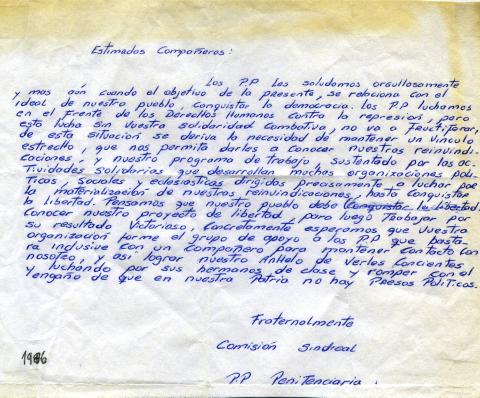 Estimados Compañeros:
Los P.P. Les saludamos orgullosamente
y mas aún cuando el objetivo de la presente, se relaciona con el
ideal de nuestro pueblo, conquistar la democracia. Los P.P luchamos
en el Frente de los Derechos Humanos contra la represión, pero
esta lucha sin vuestra solidaridad Combativa, no va a Fructiferar,
de esta situación se deriva la necesidad de mantener un vinculo
estrecho, que nos permita darles a conocer nuestras reinvindi-
caciones, y nuestro programa de trabajo, sustentado por las ac-
tividades solidarias que desarrollan muchas organizaciones poli-
ticas, sociales y eclesiasticas dirigidas precisamente a luchar por
la materialización de nuestras reinvindicaciones, hasta conquistar
la libertad. Pensamos que nuestro pueblo debe Conquistar la libertad.
Conocer nuestro proyecto de libertad, para luego Trabajar por
su resultado Victorioso, Concretamente esperamos que vuestra
organización forme el grupo de apoyo a los P.P. que basta-
rá inclusive con un Compañero para mantener Contacto con
nosotro, y así lograr nuestro Anhelo de Verlos Concientes
y luchando por sus hermanos de clase y romper con el
engaño de que en nuestra Patria no hay Presos Politicos.
Fraternalmente
Comisión Sindical
P.P Penitenciaria.
1986